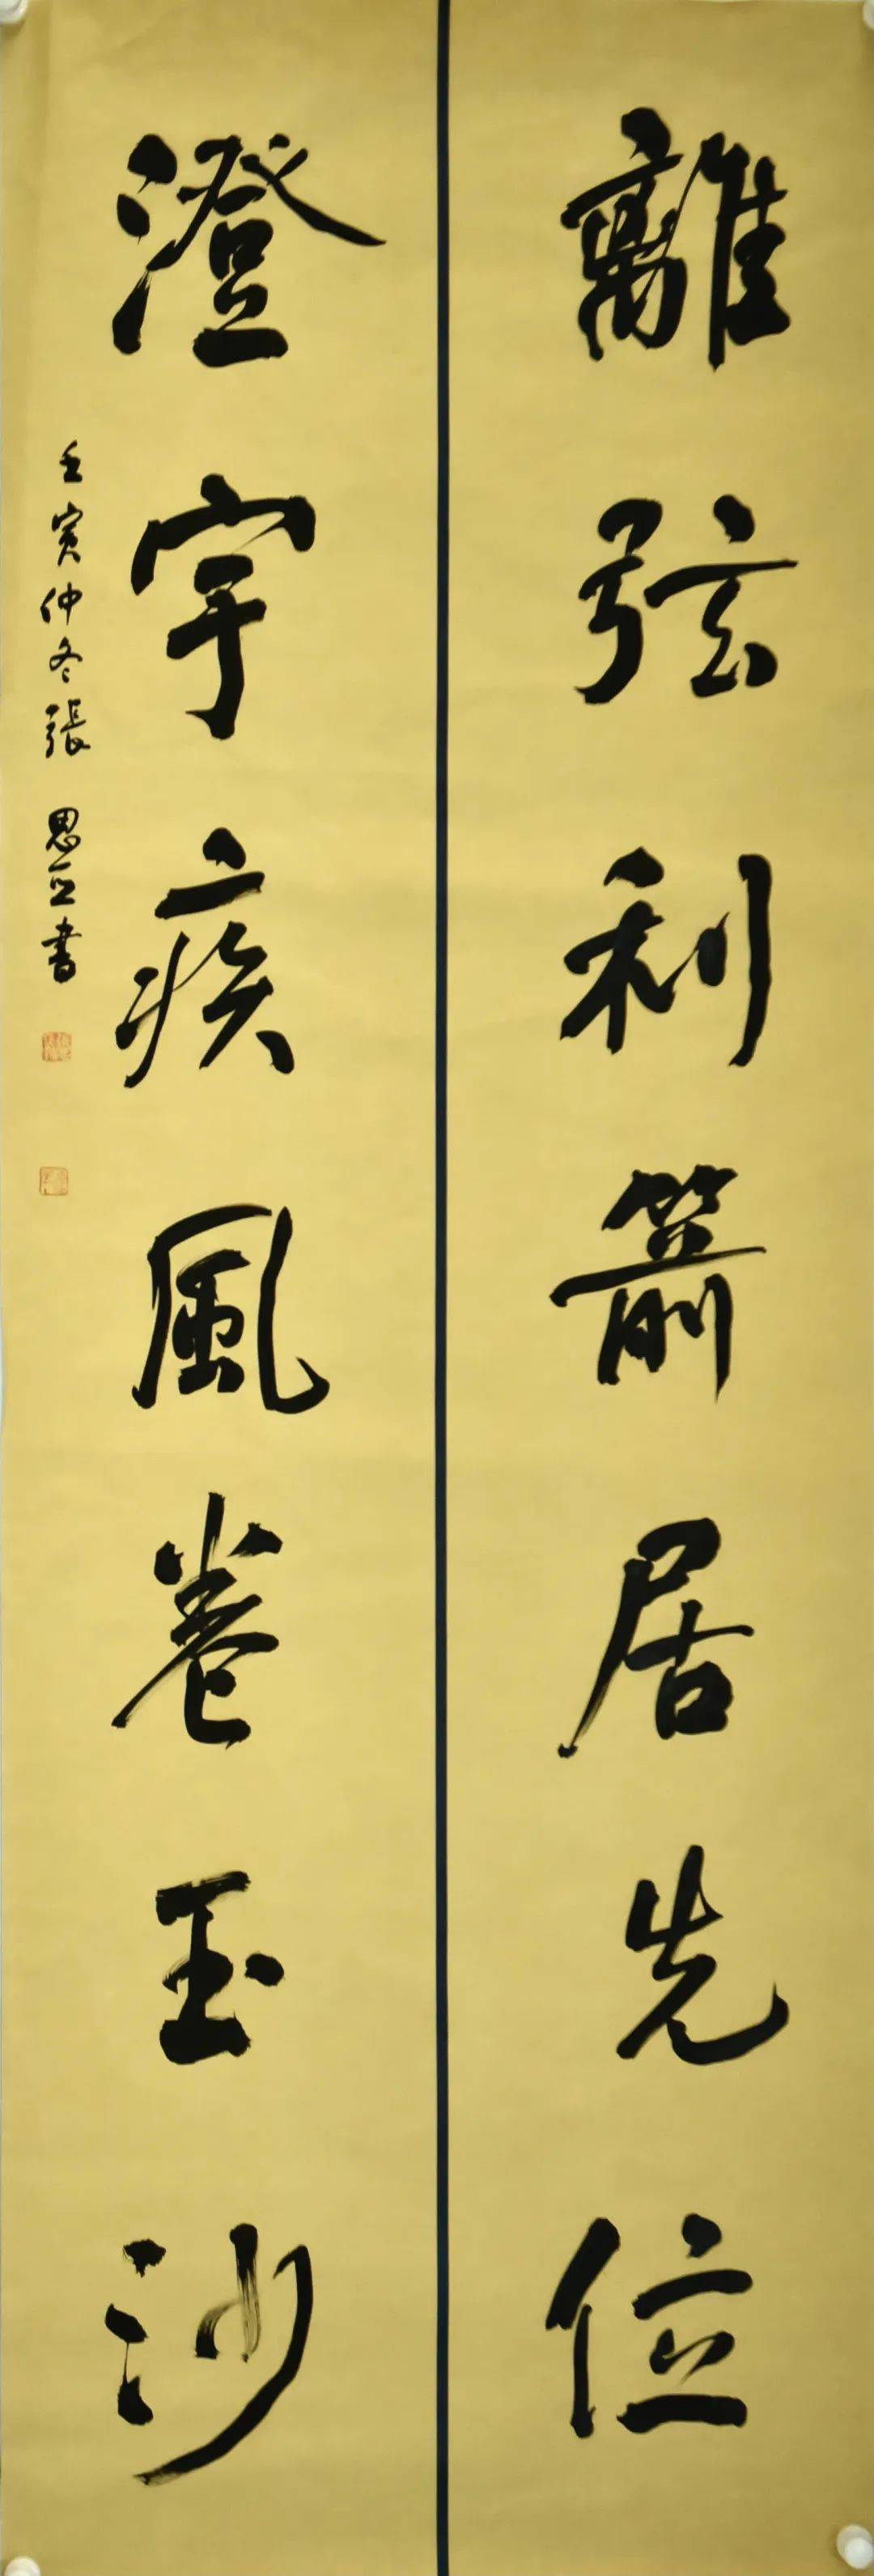 離弦利箭居先位
澄宇疾風卷玉沙
壬寅仲冬張思亞書